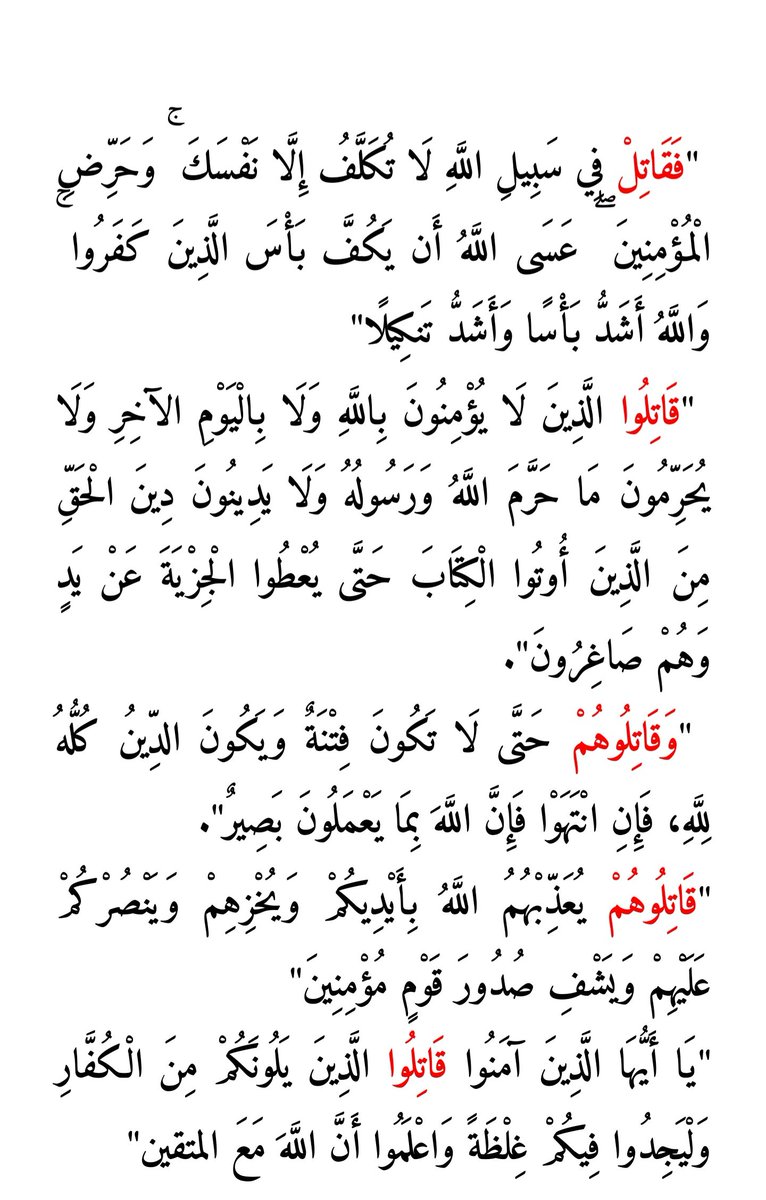 "فَقَاتِلْ فِي سَبِيلِ اللَّهِ لَا تُكَلَّفُ إِلَّا نَفْسَكَ ۚ وَحَرِّضِ
الْمُؤْمِنِينَ ۖ عَسَى اللَّهُ أَن يَكُفَّ بَأْسَ الَّذِينَ كَفَرُوا ۚ
وَاللَّهُ أَشَدُّ بَأْسًا وَأَشَدُّ تَنكِيلًا"
"قَاتِلُوا الَّذِينَ لَا يُؤْمِنُونَ بِاللَّهِ وَلَا بِالْيَوْمِ الآخِرِ وَلَا
يُحَرِّمُونَ مَا حَرَّمَ اللَّهُ وَرَسُولُهُ وَلَا يَدِينُونَ دِينَ الْحَقِّ
مِنَ الَّذِينَ أُوتُوا الْكِتَابَ حَتَّى يُعْطُوا الْجِزْيَةَ عَنْ يَدٍ
وَهُمْ صَاغِرُونَ".
"وَقَاتِلُوهُمْ حَتَّى لَا تَكُونَ فِتْنَةٌ وَيَكُونَ الدِّينُ كُلُّهُ
لِلَّهِ، فَإِنِ انْتَهَوْا فَإِنَّ اللَّهَ بِمَا يَعْمَلُونَ بَصِيرٌ".
"قَاتِلُوهُمْ يُعَذِّبْهُمُ اللَّهُ بِأَيْدِيكُمْ وَيُخْزِهِمْ وَيَنْصُرْكُمْ
عَلَيْهِمْ وَيَشْفِ صُدُورَ قَوْمٍ مُؤْمِنِينَ"
"يَا أَيُّهَا الَّذِينَ آمَنُوا قَاتِلُوا الَّذِينَ يَلُونَكُمْ مِنَ الْكُفَّارِ
وَلْيَجِدُوا فِيكُمْ غِلْظَةً وَاعْلَمُوا أَنَّ اللَّهَ مَعَ المتقين"